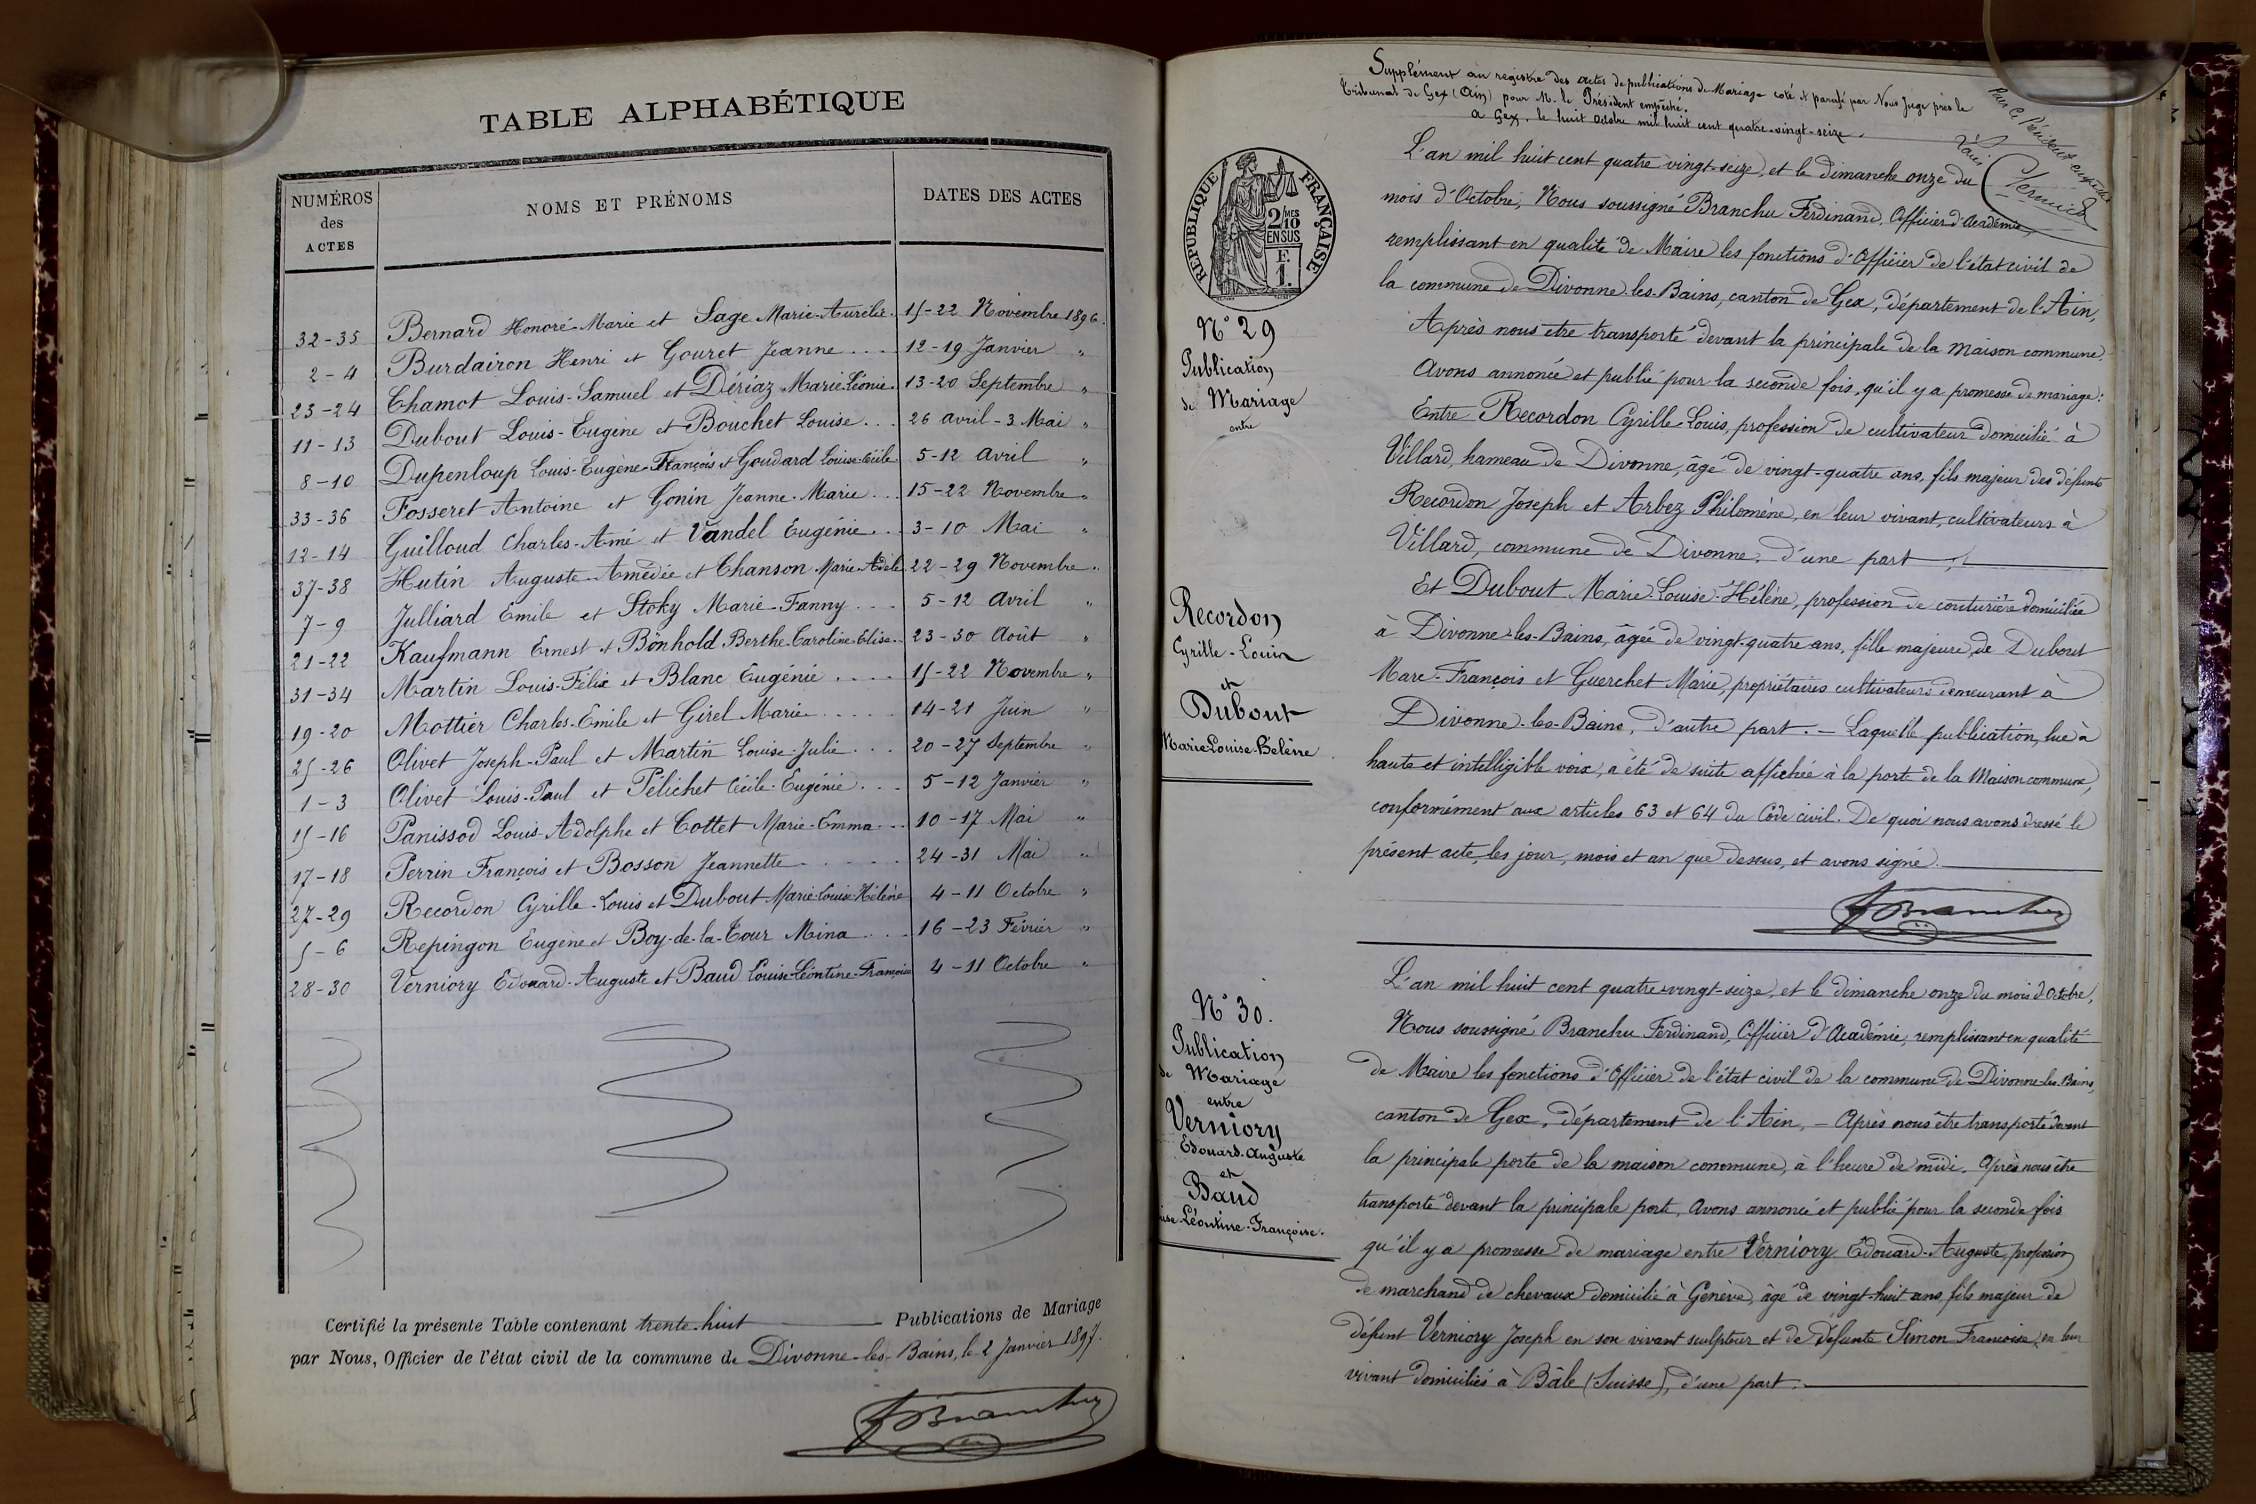 TABLE ALPHABÉTIQUE
NUMÉROS
des
ACTES
NOMS ET PRÉNOMS
DATES DES ACTES
32-35 Bernard Honoré-Marie et Sage Marie-Aurélie. 15-22 Novembre 1896.
2-4 Burdairon Henri et Gouret Jeanne .... 12-19 Janvier "
23-24 Chamot Louis-Samuel et Dériaz Marie-Léonie. 13-20 Septembre "
11-13 Dubout Louis-Eugène et Bouchet Louise ... 26 avril-3 Mai "
8-10 Dupenloup Louis-Eugène-François et Goudard Louise-Cécile 5-12 avril "
33-36 Fosseret Antoine et Gonin Jeanne-Marie ... 15-22 Novembre "
12-14 Guilloud Charles-Amé et Vandel Eugénie ... 3-10 Mai "
37-38 Hutin Auguste-Amédée et Chanson Marie-Adèle 22-29 Novembre "
7-9 Julliard Emile et Stoky Marie-Fanny ... 5-12 Avril "
21-22 Kaufmann Ernest et Bönhold Berthe-Caroline-Elise .. 23-30 Août "
31-34 Martin Louis-Félix et Blanc Eugénie .... 15-22 Novembre "
19-20 Mottier Charles-Emile et Girel Marie ..... 14-21 Juin "
25-26 Olivet Joseph-Paul et Martin Louise-Julie ... 20-27 Septembre "
1-3 Olivet Louis-Paul et Pélichet Cécile-Eugénie ... 5-12 Janvier "
15-16 Panissod Louis-Adolphe et Cottet Marie-Emma ... 10-17 Mai "
17-18 Perrin François et Bosson Jeannette ...... 24-31 Mai "
27-29 Recordon Cyrille-Louis et Dubout Marie-Louise-Hélène 4-11 Octobre "
5-6 Repingon Eugène et Boy-de-la-Tour Mina ... 16-23 Février "
28-30 Verniory Edouard-Auguste et Baud Louise-Léontine-Françoise 4-11 Octobre "
Certifié la présente Table contenant trente-huit Publications de Mariage
par Nous, Officier de l'état civil de la commune de Divonne-les-Bains, le 2 Janvier 1897.
F Branchu
Supplément au registre des actes de publications de Mariage coté et parafé par Nous Juge près le
Tribunal de Gex (Ain) pour M. le Président empêché.
A Gex, le huit Octobre mil huit cent quatre-vingt-seize.
Par le Président empêché
RÉPUBLIQUE FRANÇAISE
2/10 MES
EN SUS
F.
1.
N° 29
Publication
de Mariage
entre
Recordon
Cyrille-Louis
et
Dubout
Marie-Louise-Hélène
L'an mil huit cent quatre vingt-seize, et le dimanche onze du
mois d'Octobre, Nous soussigné Branchu Ferdinand, Officier d'Académie,
remplissant en qualité de Maire les fonctions d'Officier de l'état civil de
la commune de Divonne-les-Bains, canton de Gex, département de l'Ain,
Après nous etre transporté devant la principale de la maison commune.
Avons annoncé et publié pour la seconde fois, qu'il y a promesse de mariage:
Entre Recordon Cyrille-Louis, profession de cultivateur domicilié à
Villard, hameau de Divonne, âgé de vingt-quatre ans, fils majeur des défunts
Recordon Joseph et Arbez Philomène, en leur vivant, cultivateurs à
Villard, commune de Divonne, d'une part.
Et Dubout Marie-Louise-Hélène, profession de couturière domiciliée
à Divonne-les-Bains, âgée de vingt-quatre ans, fille majeure, de Dubout
Marc-François et Guerchet Marie, propriétaires cultivateurs demeurant à
Divonne-les-Bains, d'autre part. — Laquelle publication, lue à
haute et intelligible voix, a été de suite affichée à la porte de la Maison commune,
conformément aux articles 63 et 64 du Code civil. De quoi nous avons dressé le
présent acte, les jour, mois et an que dessus, et avons signé.
F Branchu
N° 30.
Publication
de Mariage
entre
Verniory
Edouard-Auguste
et
Baud
Léontine-Françoise.
L'an mil huit cent quatre vingt-seize, et le dimanche onze du mois d'Octobre,
Nous soussigné Branchu Ferdinand, Officier d'Académie, remplissant en qualité
de Maire les fonctions d'Officier de l'état civil de la commune de Divonne-les-Bains,
canton de Gex, département de l'Ain, — Après nous être transporté devant
la principale porte de la maison commune, à l'heure de midi. Après nous être
transporté devant la principale porte, Avons annoncé et publié pour la seconde fois
qu'il y a promesse de mariage entre Verniory Edouard-Auguste, profession
de marchand de chevaux domicilié à Genève, âgé de vingt-huit ans, fils majeur de
défunt Verniory Joseph en son vivant sculpteur et de défunte Simon Françoise, en leur
vivant domiciliés à Bâle (Suisse), d'une part.